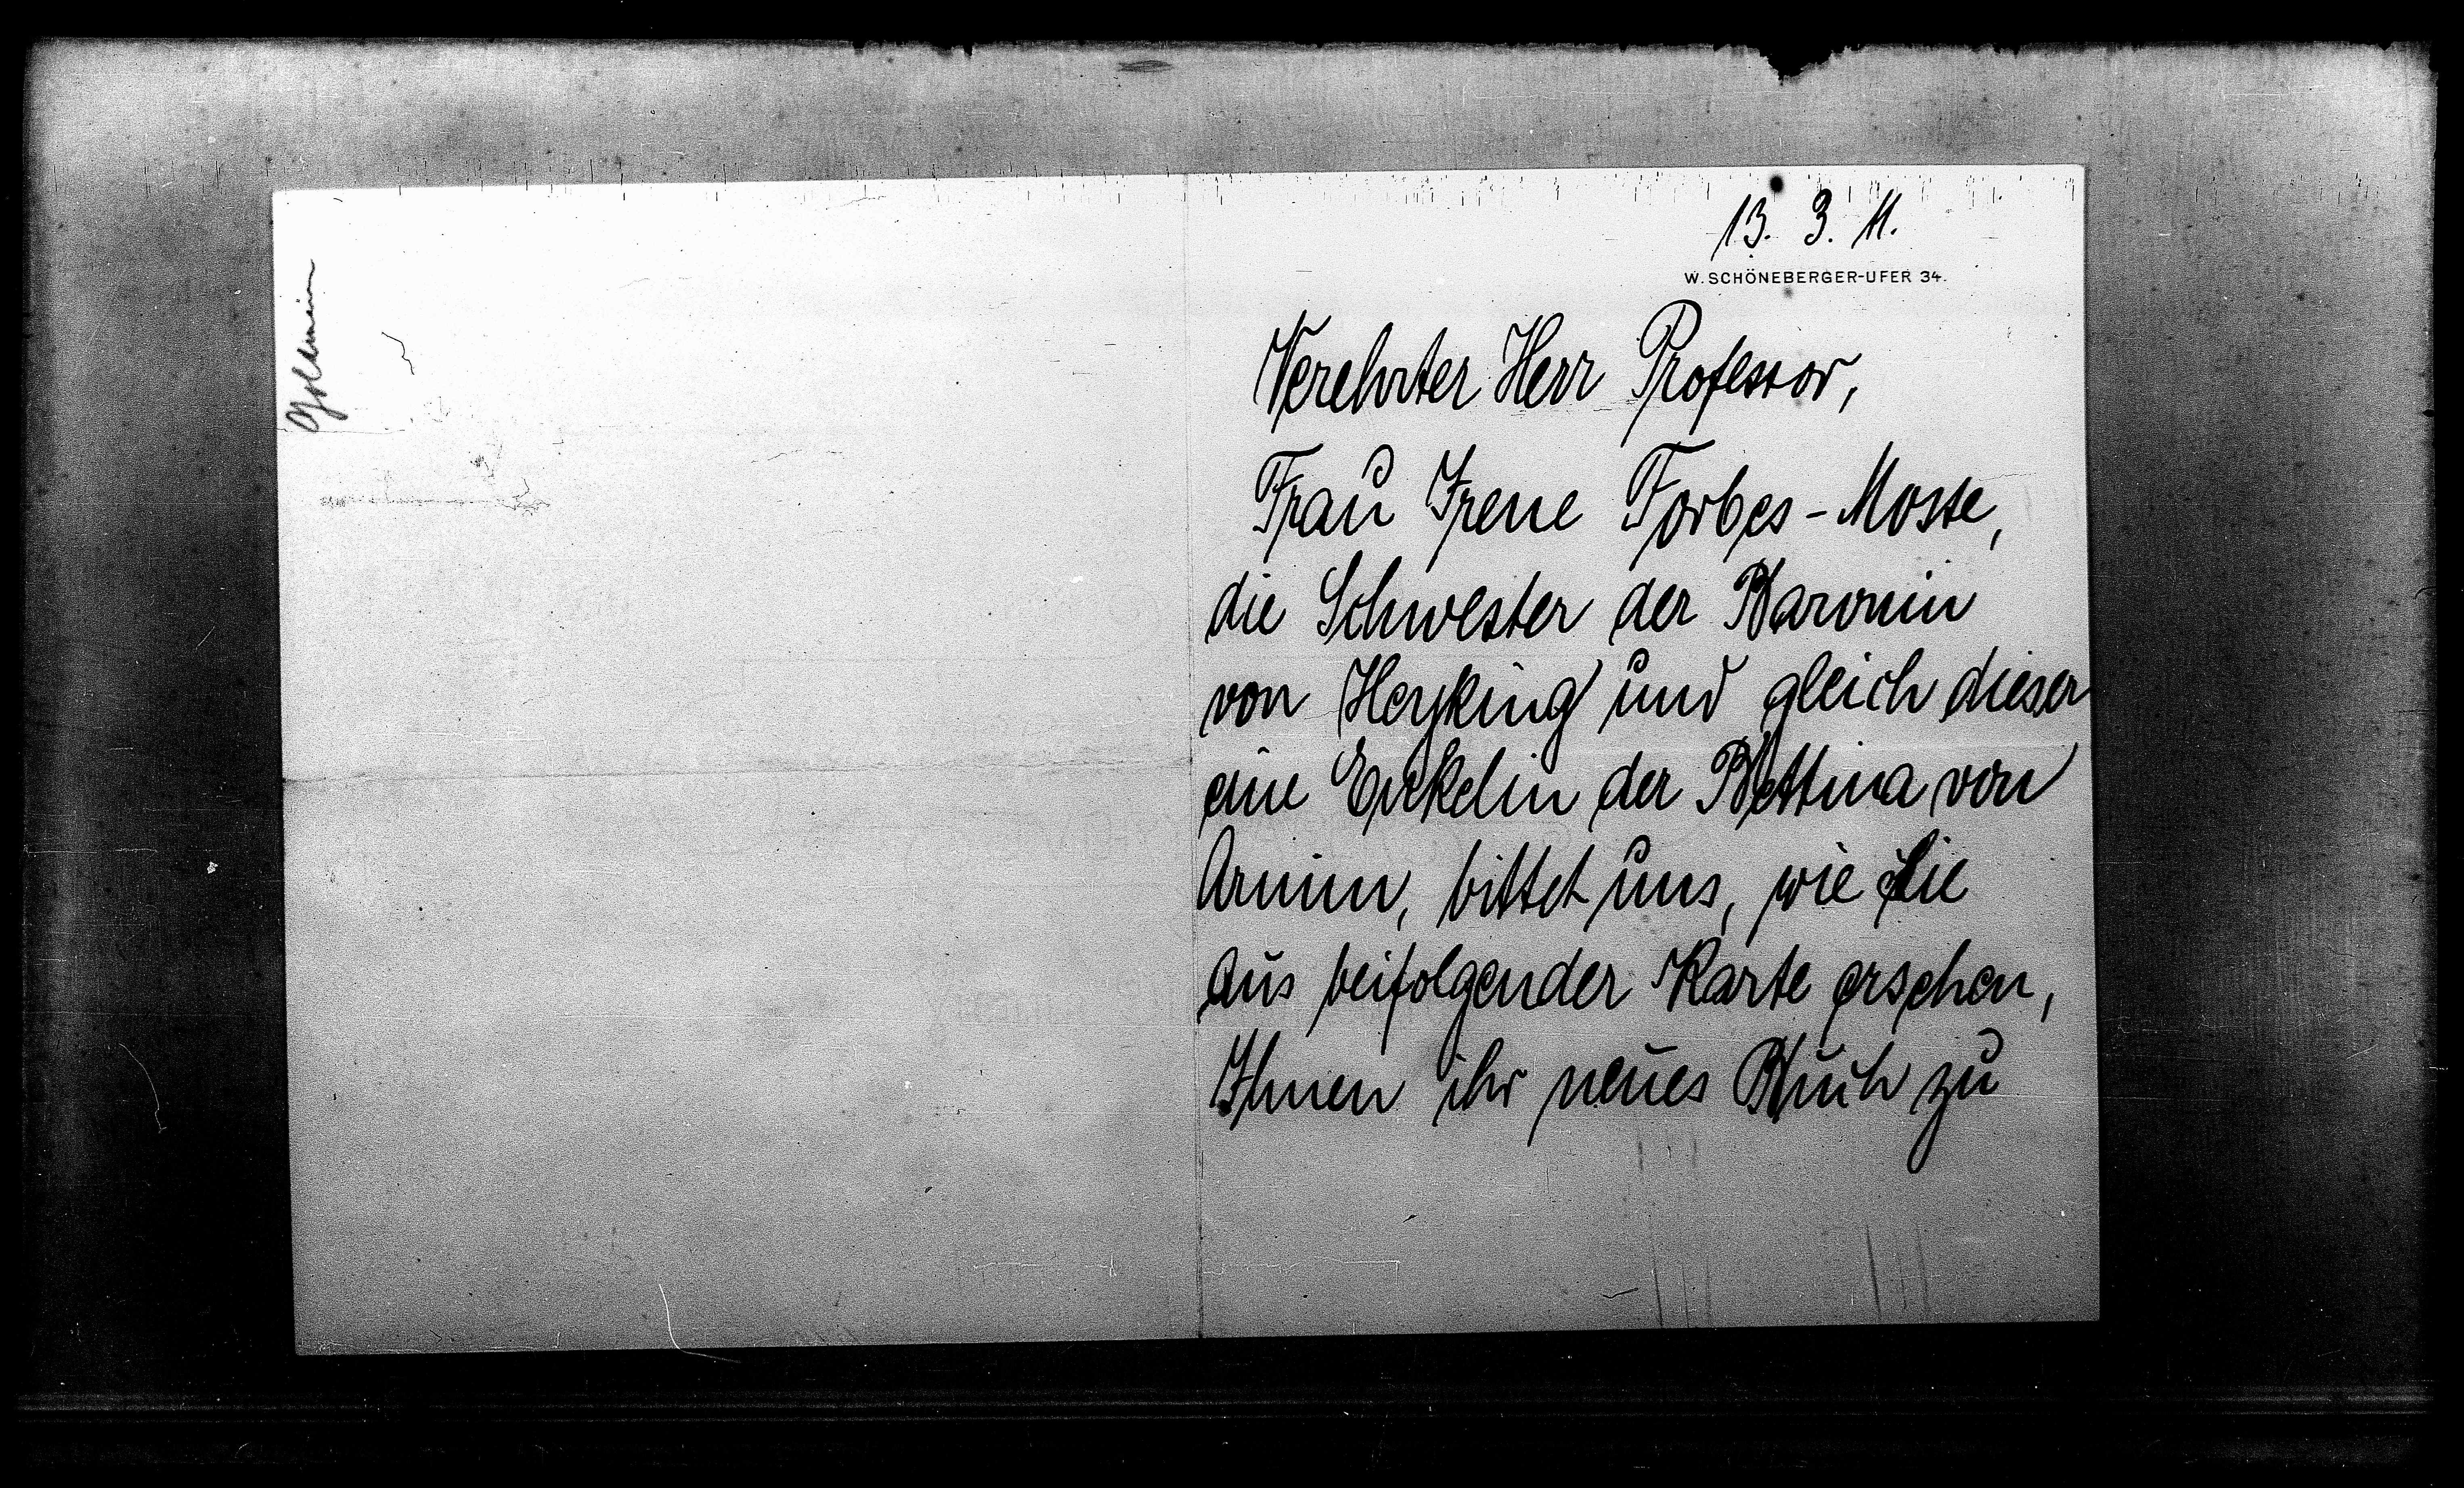 13. 3. 11.
W. SCHÖNEBERGER-UFER 34.
Verehrter Herr Professor,
Frau Irene Forbes-Mosse,
die Schwester der Baronin
von Heyking und gleich dieser
eine Enkelin der Bettina von
Arnim, bittet uns, wie Sie
aus beifolgender Karte ersehen,
Ihnen ihr neues Buch zu